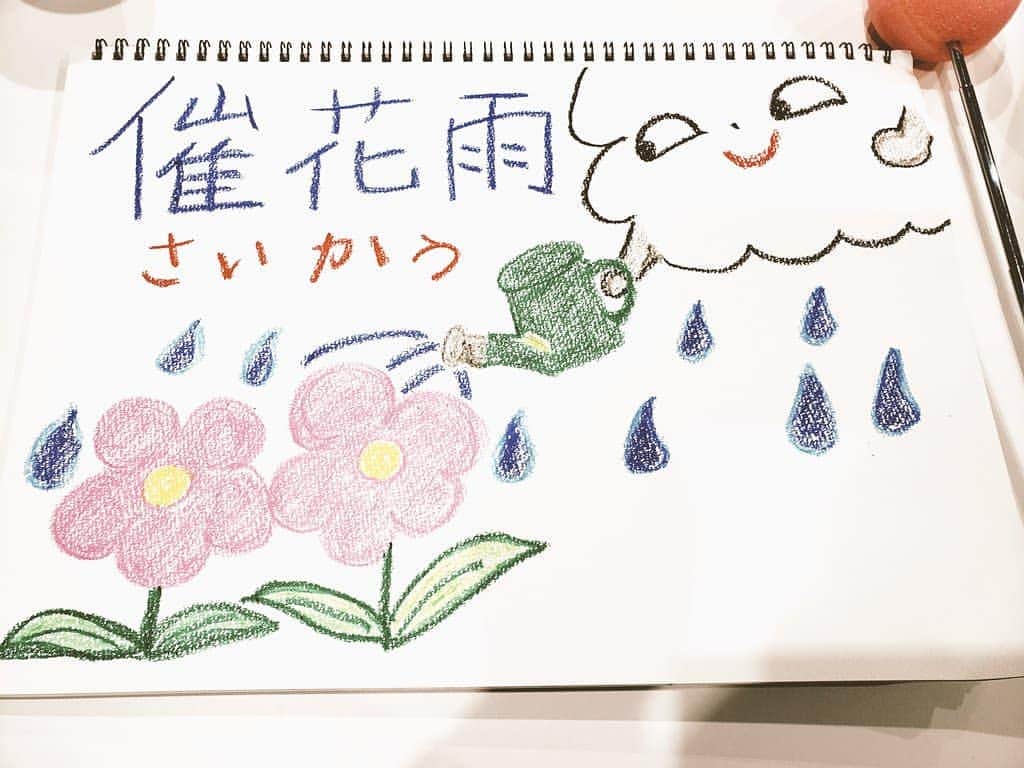 催花雨
さいかう